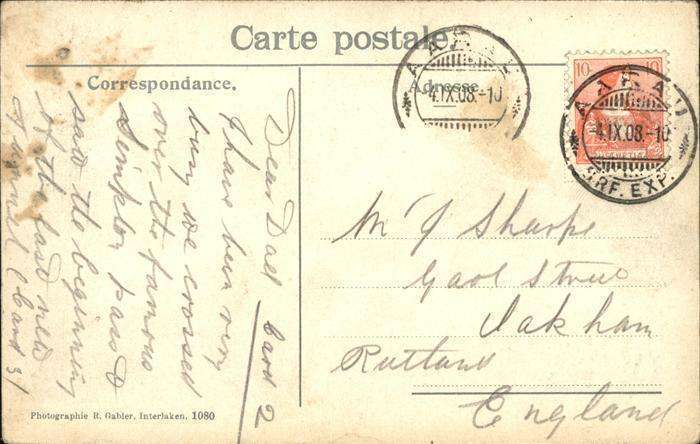 Carte postale
Correspondance.
Adresse
AARAU
4.IX.08.-10
AARAU
4.IX.08.-10
BRF. EXP.
10 10
HELVETIA
Dear Dad Card 2
I have been very
busy we crossed
over the famous
Simplon pass &
saw the beginning
of the new
tunnel (Card 3)
Mr J Sharpe
Gaol Street
Oakham
Rutland
England
Photographie R. Gabler, Interlaken. 1080